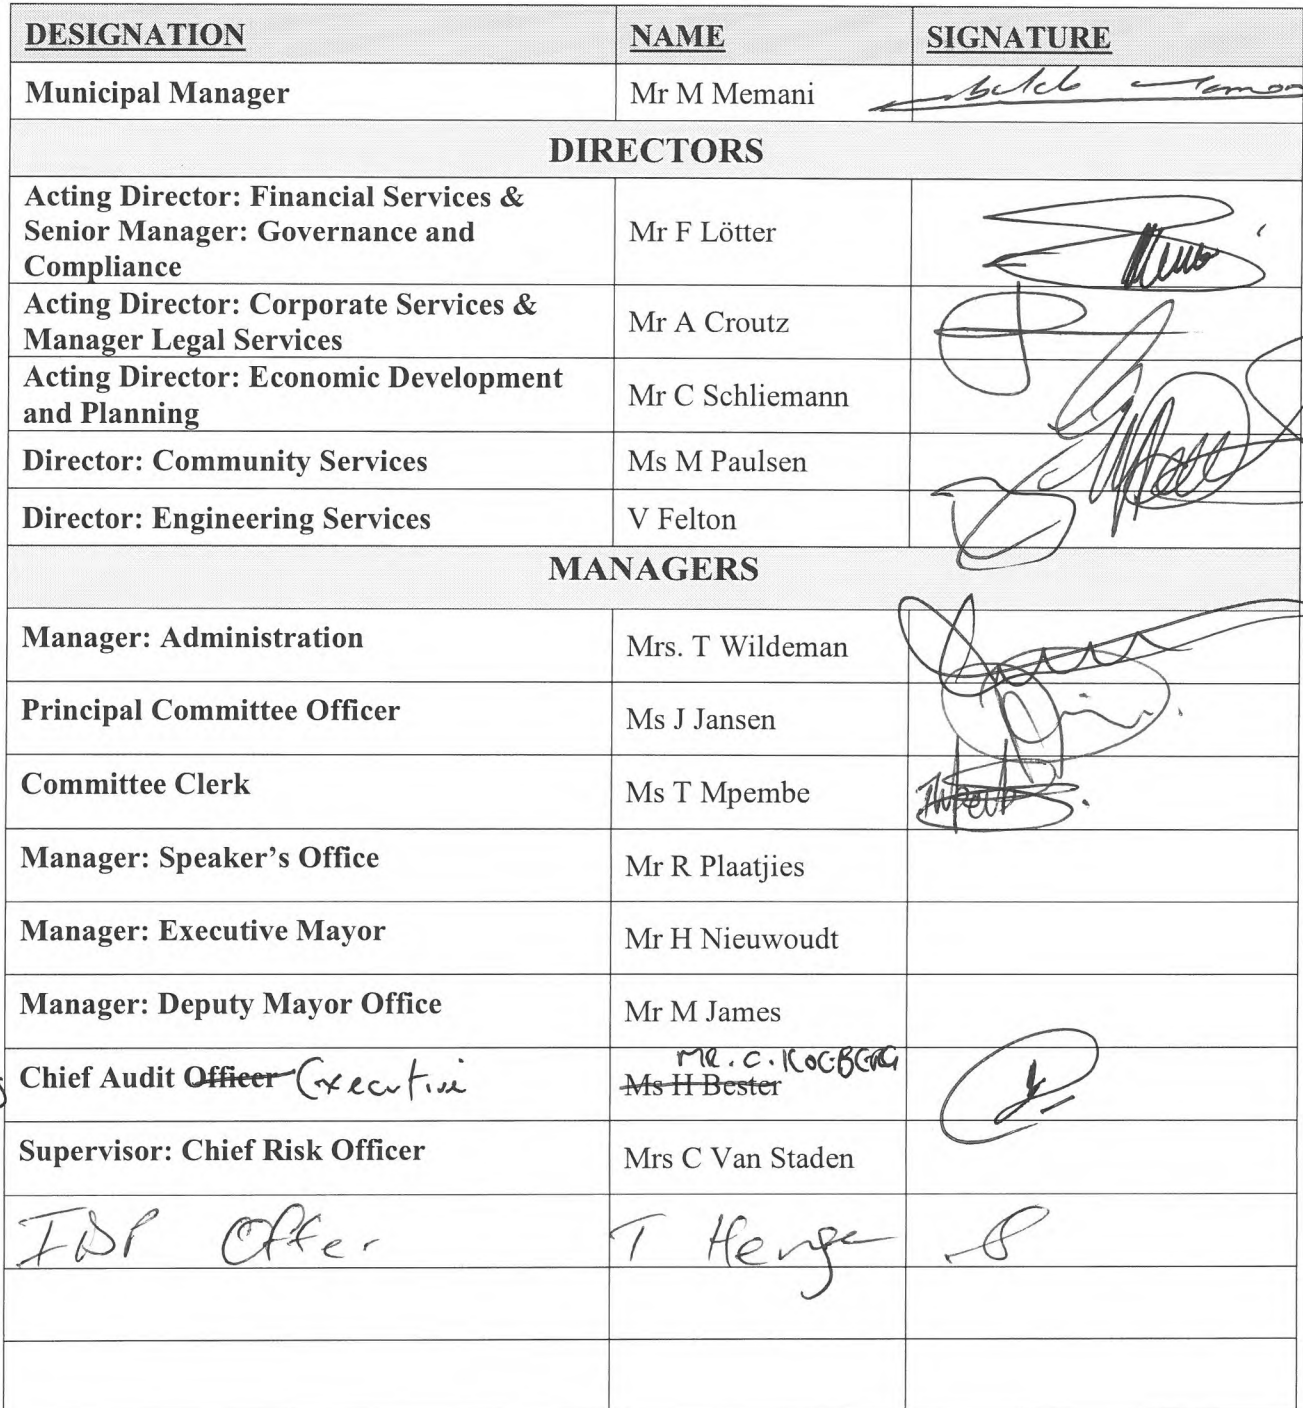 DESIGNATION NAME SIGNATURE
Municipal Manager Mr M Memani
DIRECTORS
Acting Director: Financial Services &
Senior Manager: Governance and
Compliance
Mr F Lötter
Acting Director: Corporate Services &
Manager Legal Services
Mr A Croutz
Acting Director: Economic Development
and Planning
Mr C Schliemann
Director: Community Services Ms M Paulsen
Director: Engineering Services V Felton
MANAGERS
Manager: Administration Mrs. T Wildeman
Principal Committee Officer Ms J Jansen
Committee Clerk Ms T Mpembe
Manager: Speaker’s Office Mr R Plaatjies
Manager: Executive Mayor Mr H Nieuwoudt
Manager: Deputy Mayor Office Mr M James
MR. C.
Chief Audit Officer Executive Ms H Bester
Supervisor: Chief Risk Officer Mrs C Van Staden
IDP T